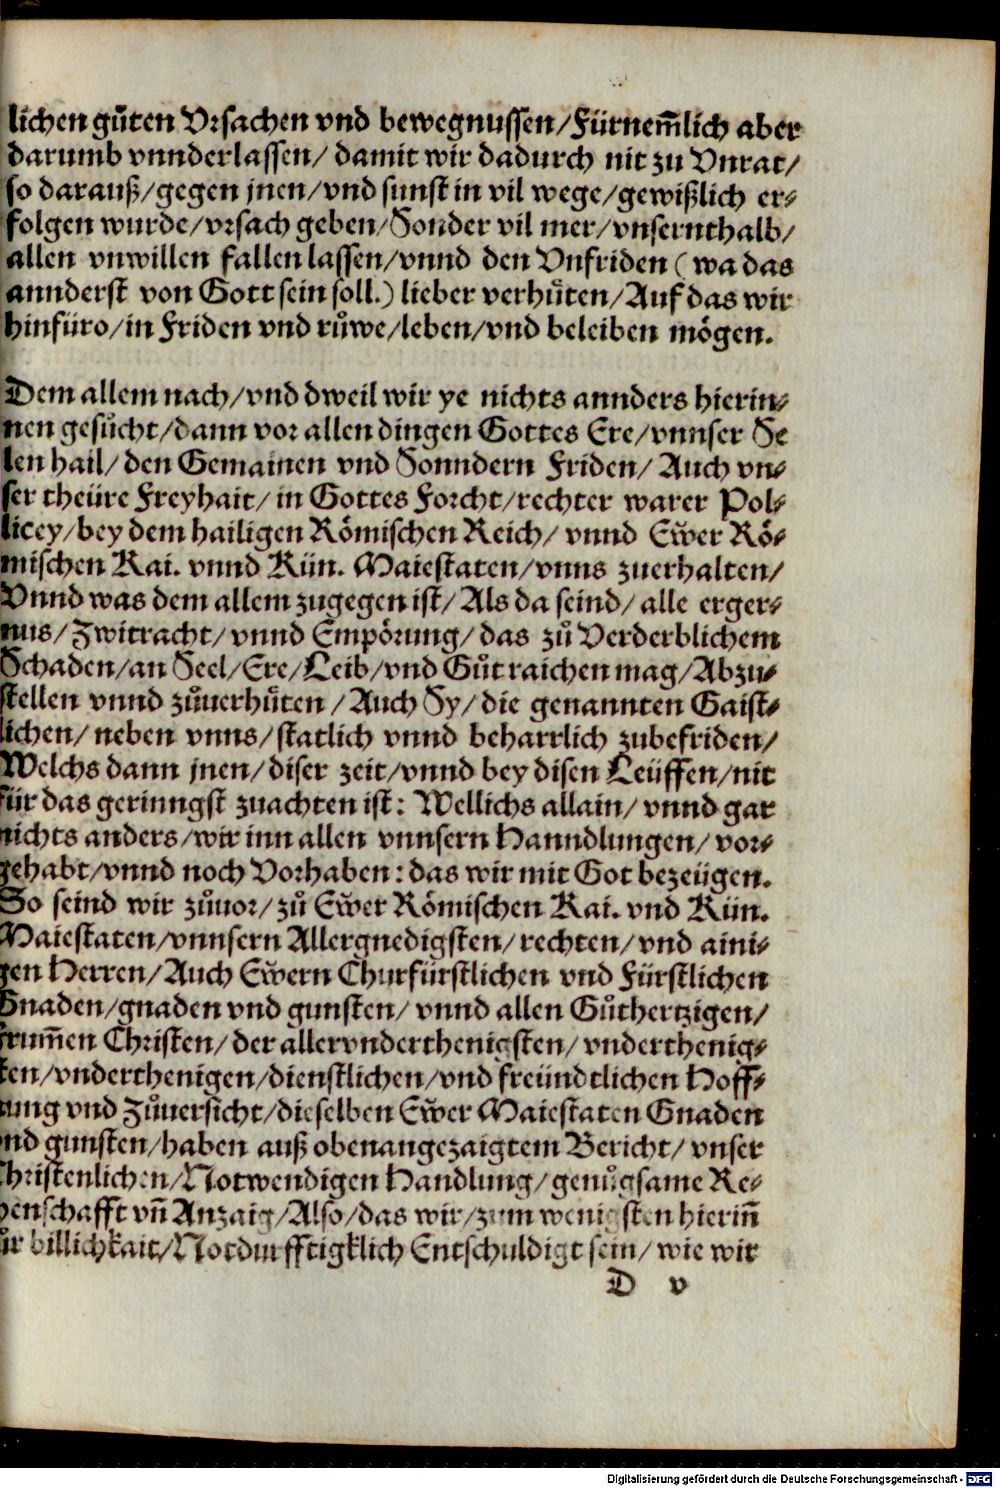 lichen gůten Vrsachen vnd bewegnussen/Fürnem̃lich aber
darumb vnnderlassen/ damit wir dadurch nit zu Vnrat/
so darauß/gegen jnen/vnd sunst in vil wege/gewißlich er⸗
folgen wurde/vrsach geben/Sonder vil mer/vnsernthalb/
allen vnwillen fallen lassen/vnnd den Vnfriden ( wa das
annderst von Gott sein soll.) lieber verhůten/Auf das wir
hinfüro/in Friden vnd růwe/leben/vnd beleiben mögen.
Dem allem nach/vnd dweil wir ye nichts annders hierin⸗
nen gesůcht/dann vor allen dingen Gottes Ere/vnnser Se
len hail/ den Gemainen vnd Sonndern Friden/ Auch vn⸗
ser theüre Freyhait/ in Gottes Forcht/rechter warer Pol⸗
licey/bey dem hailigen Römischen Reich/ vnnd Ew̃er Rö⸗
mischen Kai. vnnd Kün. Maiestaten/vnns zuerhalten/
Vnnd was dem allem zugegen ist/ Als da seind/ alle erger⸗
nus/ Zwitracht/ vnnd Empörung/ das zů Verderblichem
Schaden/an Seel/Ere/Leib/vnd Gůt raichen mag/Abzu⸗
stellen vnnd zůuerhůten / Auch Sy/ die genannten Gaist⸗
lichen/ neben vnns/ statlich vnnd beharrlich zubefriden/
Welchs dann jnen/ diser zeit/vnnd bey disen Leüffen/nit
für das geringst zuachten ist: Wellichs allain/ vnnd gar
nichts anders/wir inn allen vnnsern Hanndlungen/ vor⸗
gehabt/vnnd noch Vorhaben: das wir mit Got bezeügen.
So seind wir zůuor/ zů Ew̃er Römischen Kai. vnd Kün.
Maiestaten/vnnsern Allergnedigsten/ rechten/ vnd aini⸗
gen Herren/ Auch Ew̃ern Churfürstlichen vnd Fürstlichen
Gnaden/gnaden vnd gunsten/ vnnd allen Gůthertzigen/
frum̃en Christen/ der allervnderthenigsten/ vnderthenig⸗
sten/vnderthenigen/dienstlichen/vnd freündtlichen Hoff⸗
nung vnd Zůuersicht/dieselben Ew̃er Maiestaten Gnaden
vnd gunsten/haben auß obenangezaigtem Bericht/ vnser
Christenlichen/Notwendigen Handlung/genůgsame Re⸗
chenschafft vñ Anzaig/Also/das wir/zum wenigsten hieriñ
für billichkait/Notdurfftigklich Entschuldigt sein/ wie wir
D v
Digitalisierung gefördert durch die Deutsche Forschungsgemeinschaft - DFG